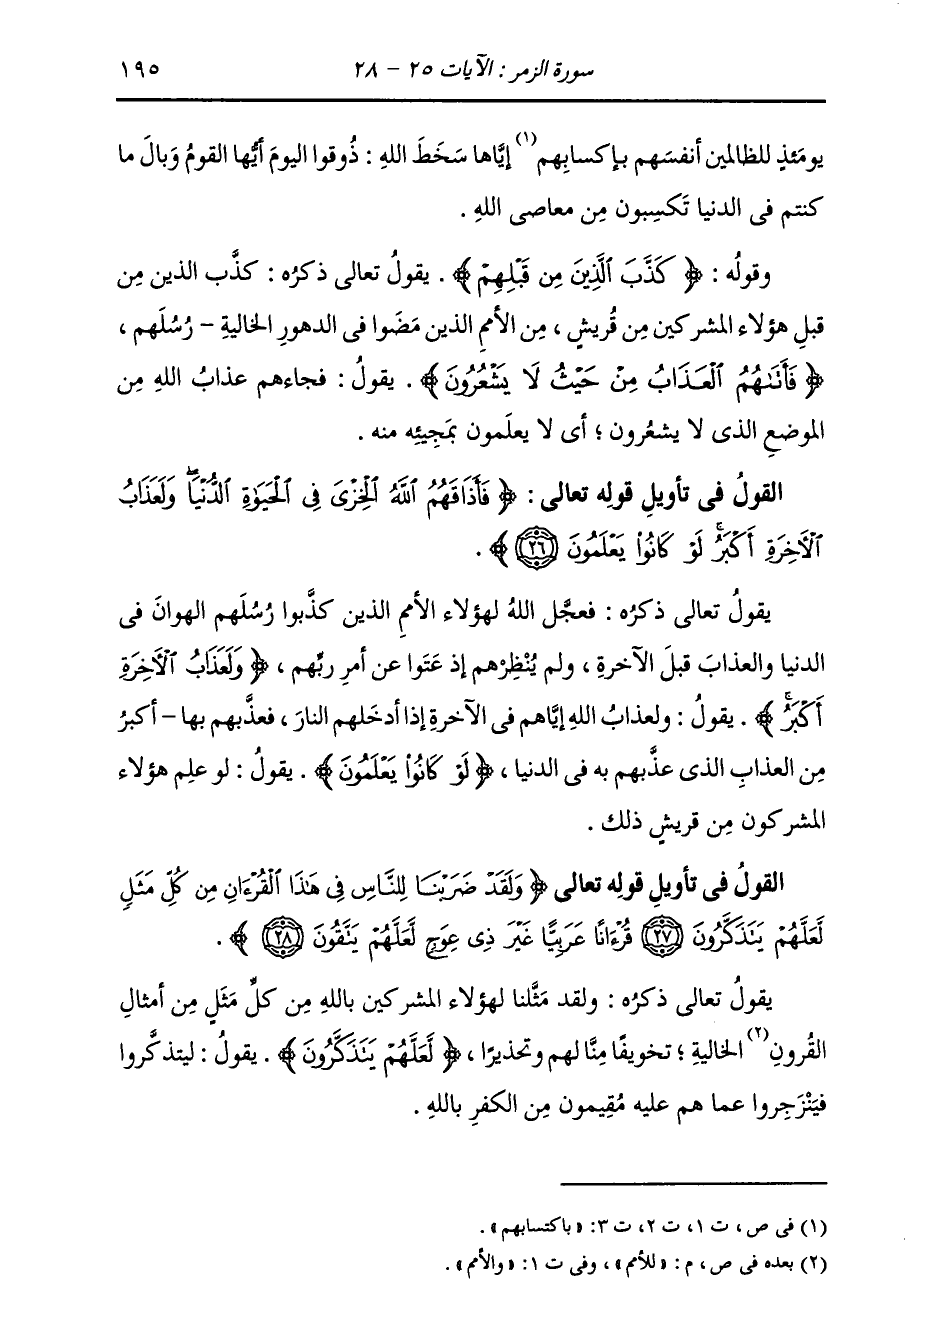 سورة الزمر : الآيات ٢٥ - ٢٨ ١٩٥
يومَئذٍ للظالمين أنفسَهم بإكسابِهم(١) إيَّاها سَخَطَ اللهِ : ذُوقوا اليومَ أيُّها القومُ وَبالَ ما
كنتم فى الدنيا تَكسِبون مِن معاصى اللهِ .
وقولُه : ﴿ كَذَّبَ ٱلَّذِينَ مِن قَبْلِهِمْ ﴾ . يقولُ تعالى ذكرُه : كذَّب الذين مِن
قبلِ هؤلاء المشركين مِن قُريشٍ ، مِن الأممِ الذين مَضَوا فى الدهورِ الخاليةِ - رُسُلَهم ،
﴿ فَأَتَىٰهُمُ ٱلْعَذَابُ مِنْ حَيْثُ لَا يَشْعُرُونَ ﴾ . يقولُ : فجاءهم عذابُ اللهِ مِن
الموضعِ الذى لا يشعُرون ؛ أى لا يعلَمون بمَجِيئِه منه .
القولُ فى تأويلِ قولِه تعالى : ﴿ فَأَذَاقَهُمُ ٱللَّهُ ٱلْخِزْىَ فِى ٱلْحَيَوٰةِ ٱلدُّنْيَاۖ وَلَعَذَابُ
ٱلْأَخِرَةِ أَكْبَرُۚ لَوْ كَانُوا۟ يَعْلَمُونَ ٢٦ ﴾ .
يقولُ تعالى ذكرُه : فعجَّل اللهُ لهؤلاء الأممِ الذين كذَّبوا رُسُلَهم الهوانَ فى
الدنيا والعذابَ قبلَ الآخرةِ ، ولم يُنْظِرْهم إذ عَتَوا عن أمرِ ربِّهم ، ﴿ وَلَعَذَابُ ٱلْأَخِرَةِ
أَكْبَرُۚ ﴾ . يقولُ : ولعذابُ اللهِ إيَّاهم فى الآخرةِ إذا أدخَلهم النارَ ، فعذَّبهم بها - أكبرُ
مِن العذابِ الذى عذَّبهم به فى الدنيا ، ﴿ لَوْ كَانُوا۟ يَعْلَمُونَ ﴾ . يقولُ : لو علِم هؤلاء
المشركون مِن قريشٍ ذلك .
القولُ فى تأويلِ قولِه تعالى ﴿ وَلَقَدْ ضَرَبْنَا لِلنَّاسِ فِى هَٰذَا ٱلْقُرْءَانِ مِن كُلِّ مَثَلٍ
لَّعَلَّهُمْ يَتَذَكَّرُونَ ٢٧ قُرْءَانًا عَرَبِيًّا غَيْرَ ذِى عِوَجٍ لَّعَلَّهُمْ يَتَّقُونَ ٢٨ ﴾ .
يقولُ تعالى ذكرُه : ولقد مَثَّلنا لهؤلاء المشركين باللهِ مِن كلِّ مَثَلٍ مِن أمثالِ
القُرونِ(٢) الخاليةِ ؛ تخويفًا مِنَّا لهم وتحذيرًا ، ﴿ لَّعَلَّهُمْ يَتَذَكَّرُونَ ﴾ . يقولُ : ليتذكَّروا
فيَنْزَجِروا عما هم عليه مُقِيمون مِن الكفرِ باللهِ .
(١) فى ص ، ت ١، ت ٢، ت ٣: «باكتسابهم» .
(٢) بعده فى ص ، م : «للأمم» ، وفى ت ١: «والأمم» .